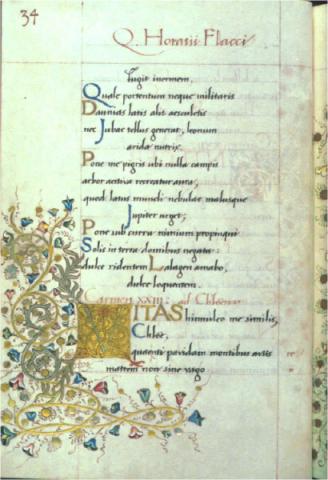 34
Q. Horatii Flacci
fugit inermem.
Quale portentum neque militaris
Daunias latis alit aesculetis
nec Jubae tellus generat, leonum
arida nutrix.
Pone me pigris ubi nulla campis
arbor aestiva recreatur aura,
quod latus mundi nebulae malusque
Jupiter urget;
Pone sub curru nimium propinqui
Solis in terra domibus negata:
dulce ridentem Lalagen amabo,
dulce loquentem.
Carmen XXIII. ad Chloen
VITAS hinnuleo me similis,
Chloe,
quaerenti pavidam montibus aviis
matrem non sine vano